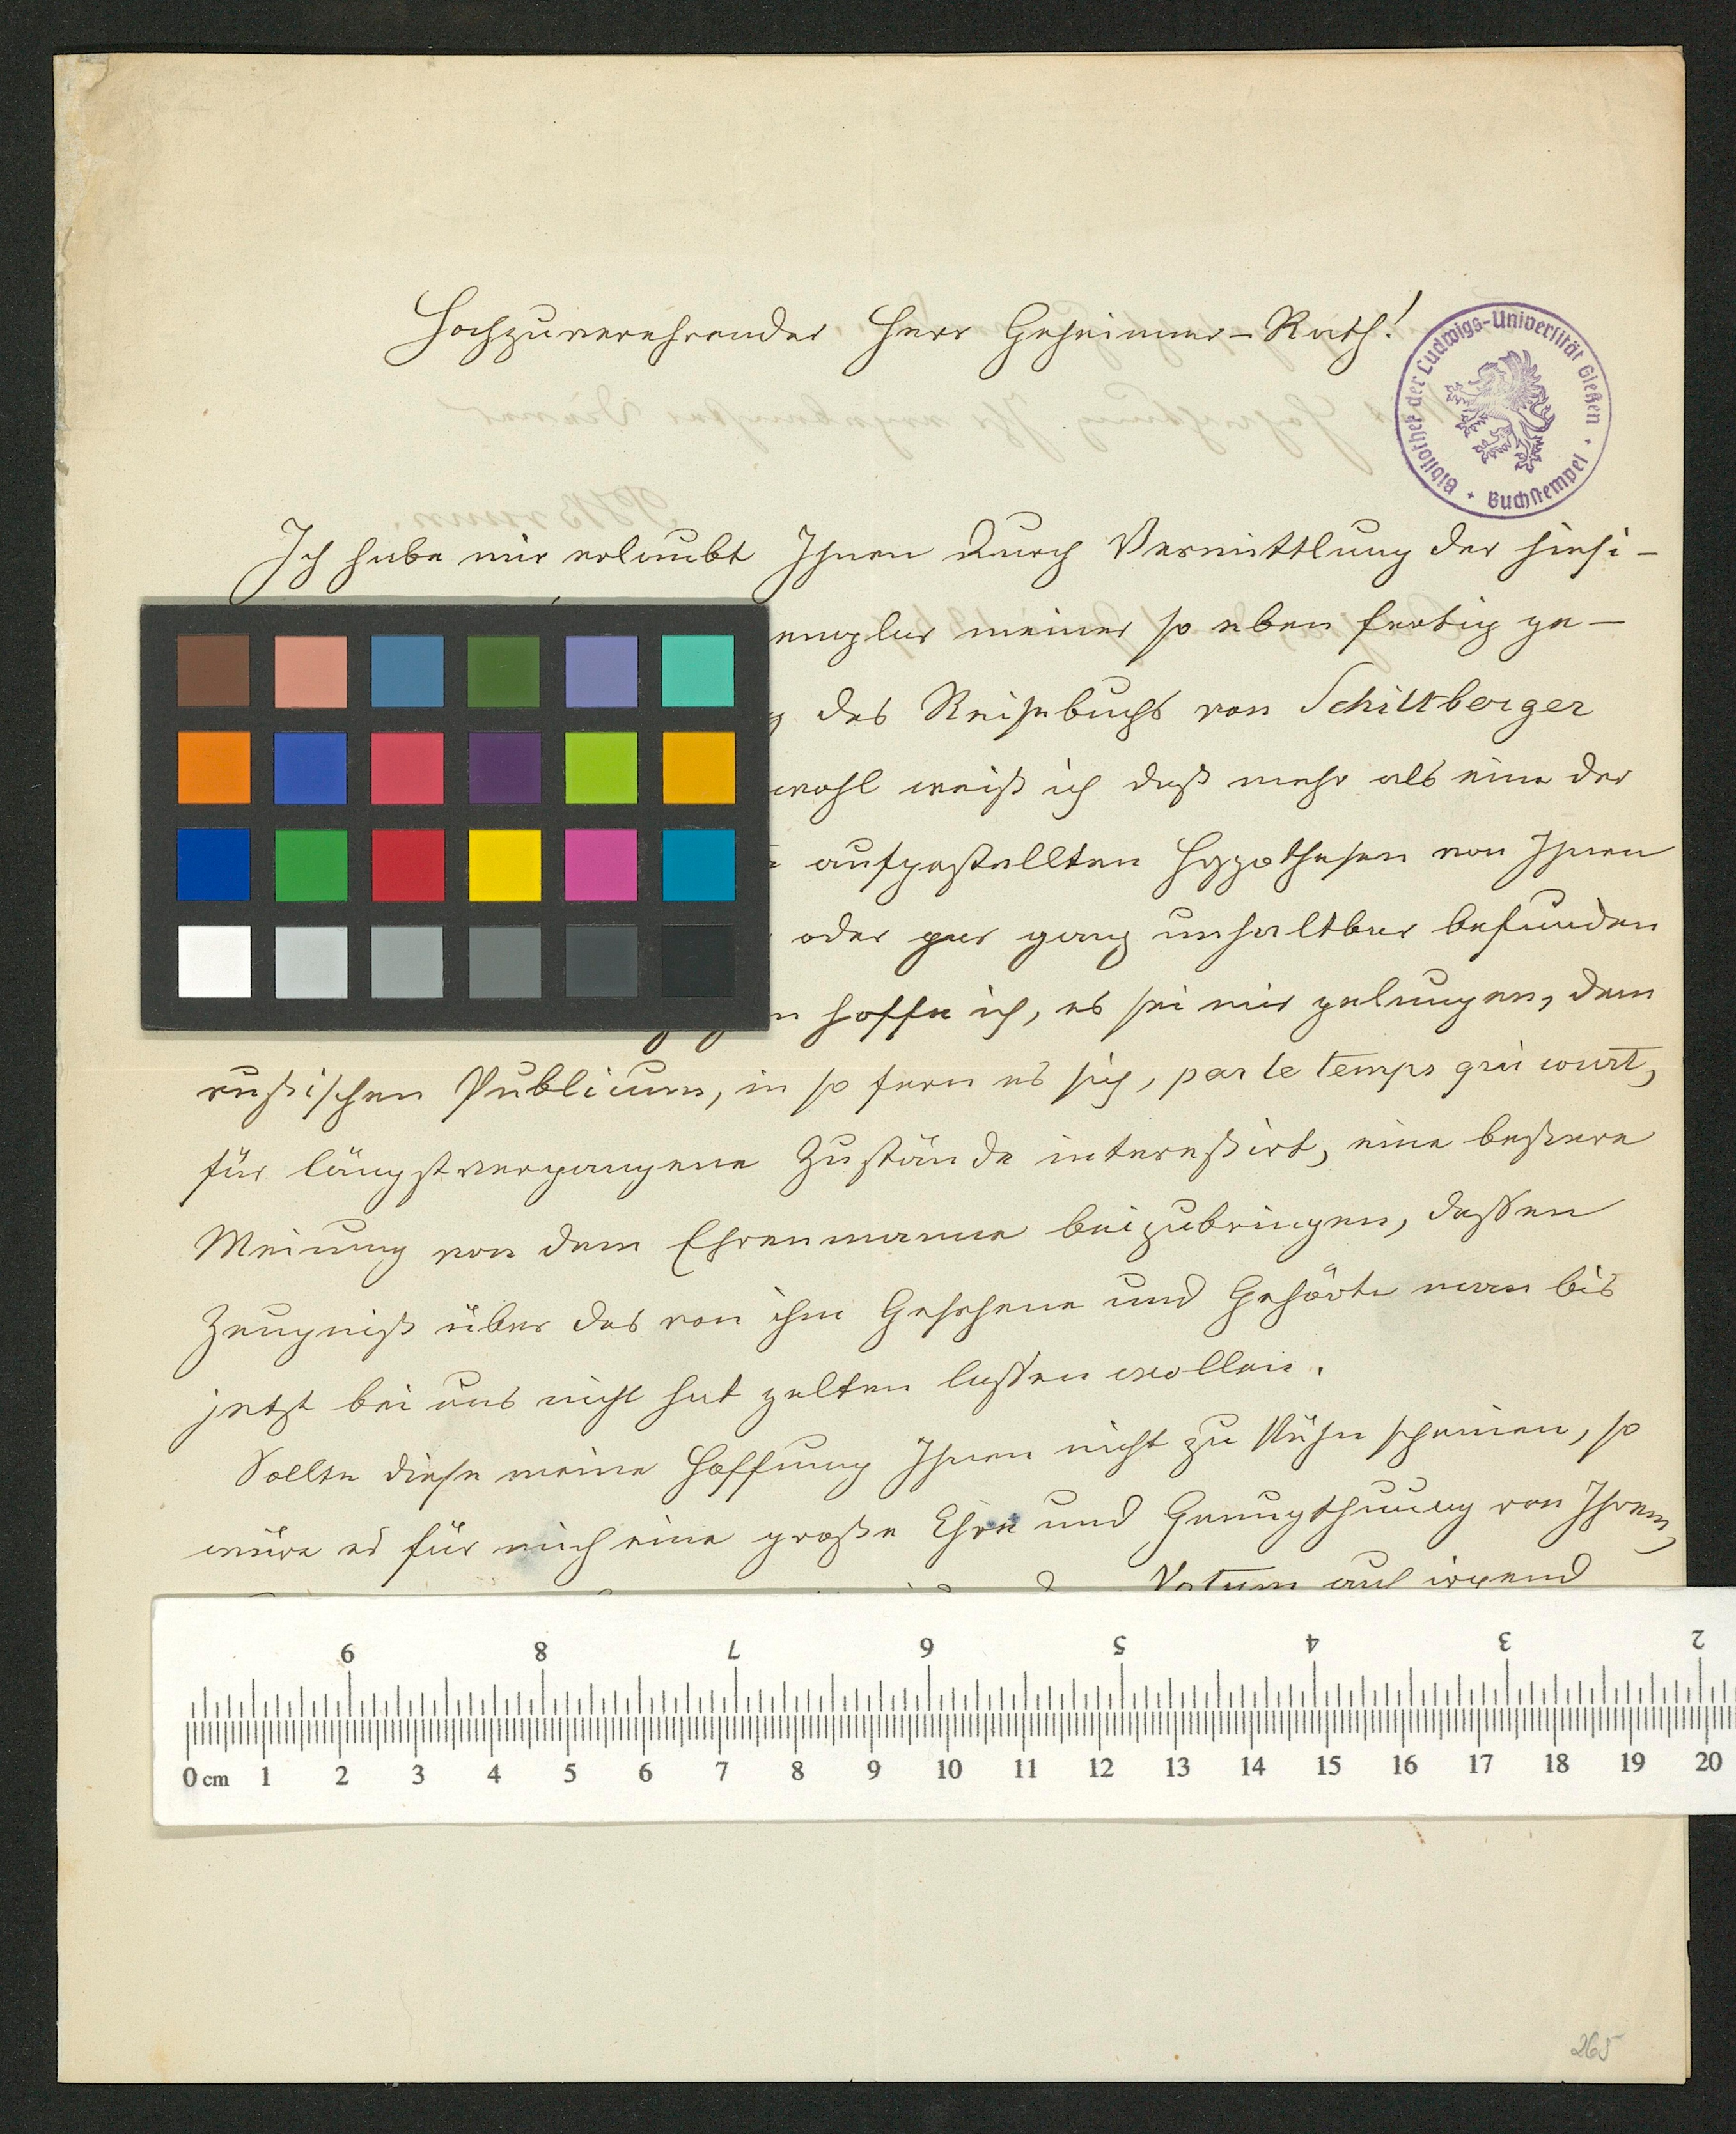 Hochzuverehrender Herr Geheimer-Rath!
Bibliothek der Ludwigs-Universität Gießen · Buchstempel
Ich habe mir erlaubt Ihnen durch Vermittlung der hiesi-
emplar meiner so eben fertig ge-
g des Reisebuchs von Schiltberger
wohl weiß ich daß mehr als eine der
aufgestellten Hypothesen von Ihnen
oder gar ganz unhaltbar befunden
n hoffe ich, es sei mir gelungen, dem
rußischen Publicum, in so fern es sich, par le temps qui court,
für längstvergangene Zustände interessirt, eine beßere
Meinung von dem Ehrenmanne beizubringen, dessen
Zeugniß über das von ihm Gesehene und Gehörte man bis
jetzt bei uns nicht hat gelten lassen wollen.
Sollte diese meine Hoffnung Ihnen nicht zu kühn scheinen, so
wäre es für mich eine große Ehre und Genugthuung von Ihrem,
Votum auf irgend
9 8 7 6 5 4 3 2
0 cm 1 2 3 4 5 6 7 8 9 10 11 12 13 14 15 16 17 18 19 20
265